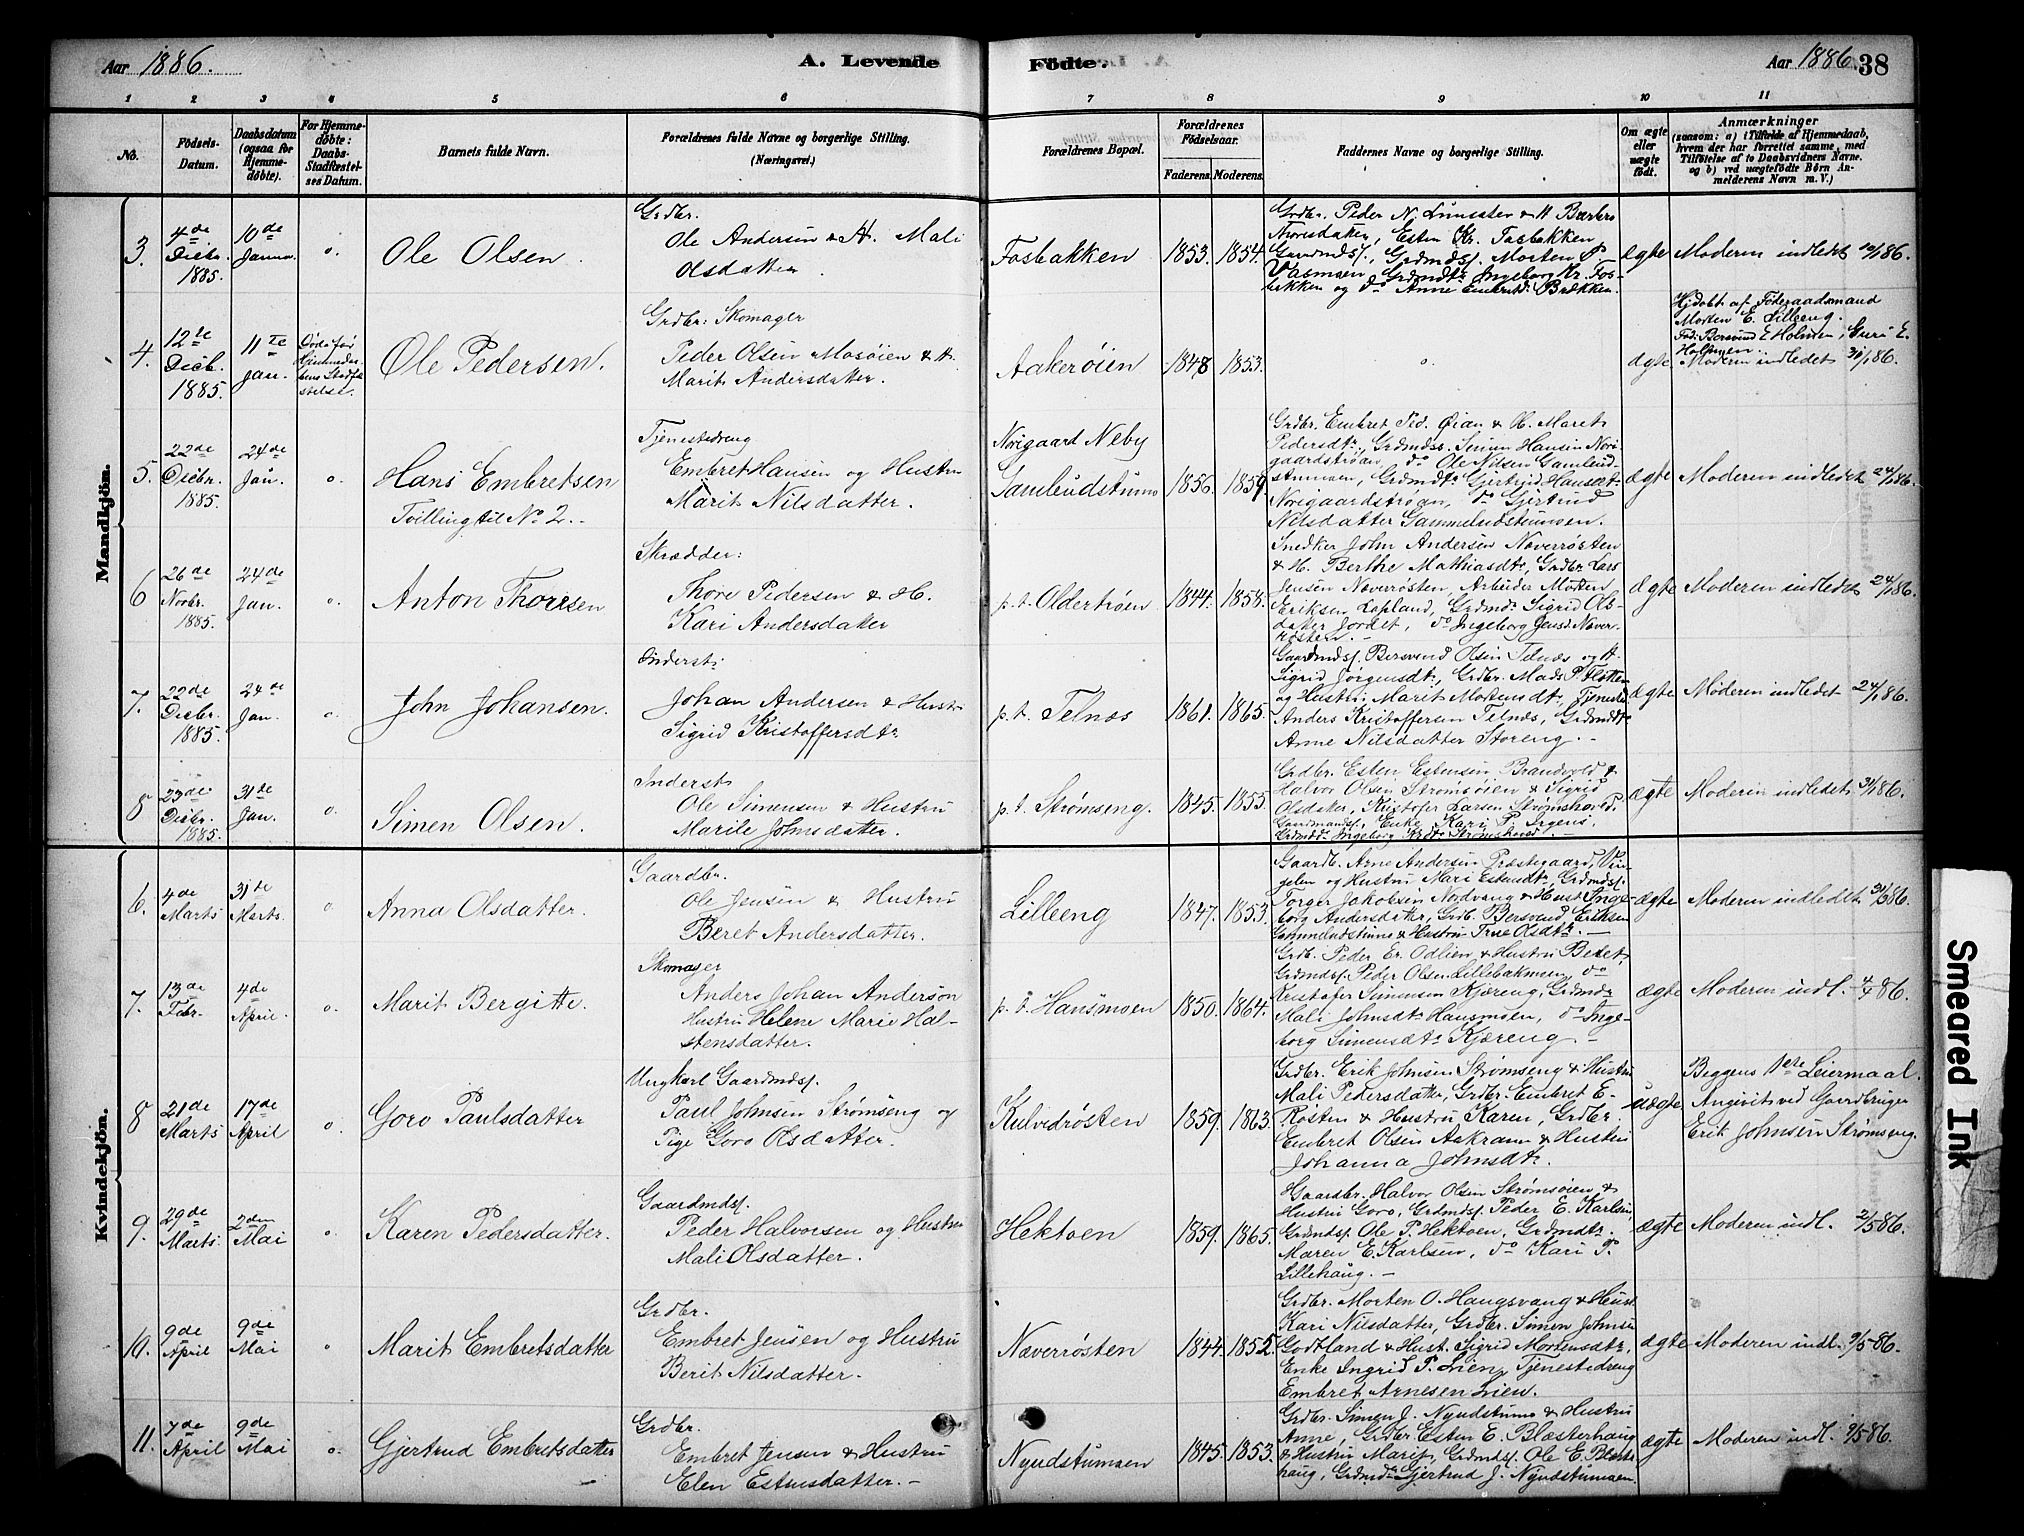 Aar 1886.
A. Levende Födte.
Aar 1886. 38
1 2 3 4 5 6 7 8 9 10 11
No.
Födsels-
Datum.
Daabsdatum
(ogsaa for
Hjemme-
døbte).
For Hjemme-
døbte:
Daabs-
Stadfæstel-
ses Datum.
Barnets fulde Navn.
Forældrenes fulde Navne og borgerlige Stilling.
(Næringsvei.)
Forældrenes Bopæl.
Forældrenes
Födselsaar.
Faderens. Moderens.
Faddernes Navne og borgerlige Stilling.
Om ægte
eller
uægte
födt.
Anmærkninger
(saasom: a) i Tilfælde af Hjemmedaab,
hvem der har forrettet samme, med
Tilföielse af to Daabsvidners Navne.
og b) ved uægtefödte Børn An-
melderens Navn m. V.)
Mandkjön.
3.
4de
Decbr.
1885
10de
Januar.
o.
Ole Olsen.
Grdbr.
Ole Andersen & H. Mali
Olsdatter.
Fosbakken
1853. 1854.
Esten Kr. Fosbakken
ægte
Moderen indledet 10/1 86.
4.
12te
Decb.
1885.
11te
Jan.
Ole Pedersen.
Grdbr: Skomager
Peder Olsen Mosöien & H.
Marit Andersdatter.
Aakerøien
1848 1853.
o.
ægte
Hjdøbt af Föderaadsmand
Morten E. Lilleeng.
Fad: Bersvend E Holmen, Guri E.
Holmen.
Moderen indledet 31/1 86.
5.
22de
Decbr.
1885
24de
Jan.
o.
Hans Embretsen
Tvilling til No 2.
Tjenestedreng
Embret Hansen og Hustru
Marit Nilsdatter.
Norigaard Neby
1856.
Grdbr. Embret Ped. Øian & H. Maret
Pedersdtr., Grdmds. Simen Hansen Nori-
gaardstrøen, do Ole Nilsen Gamlend-
stumoen, Grdmdtr Gjertrud Hansdt
Norigaardstrøen, do Gjertrud
Nilsdatter Gammelndstumoen.
ægte
Moderen indledet 24/1 86.
6
26de
Novbr.
1885.
24de
Jan.
o.
Anton Thoresen
Skrædder:
Thore Pedersen & H.
Kari Andersdatter
p. t. Oldertrøen
1844. 1858.
Snedker John Andersen Næverrøsten
& H. Berthe Mathiasdtr, Grdbr. Lars
Jensen Næverrøsten, Arbeider Morten
Eriksen Lopland, Grdmdtr Sigrid Ols-
datter Jordet, do Ingeborg Jensd. Næver-
røsten.
ægte
Moderen indledet 24/1 86.
7.
22de
Decbr.
1885.
24de
Jan.
o.
John Johansen.
Inderst:
Johan Andersen & Hustr
Sigrid Kristoffersdtr
p. t. Telnæs
1861. 1865.
Gaardmdsf. Bersvend Olsen Telnæs og H
Sigrid Jørgensdtr, Grdbr. Mads P. Flotte-
og Hustru Marit Mortensdtr, Tjenestd.
Anders Kristoffersen Telnæs, Grdmdtr
Anne Nilsdatter Storeng.
ægte
Moderen indledet 24/1 86.
8
23de
Decbr.
1885
31de
Jan.
o.
Simen Olsen.
Inderst
Ole Simensen & Hustru
Marile Johnsdatter.
p. t. Strømseng.
1845.
Grdbr. Esten Estensen Brandvold &
Halvor Olsen Strømsøien & Sigrid
Olsdatter, Kristofer Larsen Strømshoved
Gaardmandsf, Enke Kari P.
Grdmdtr Ingeborg
ægte
Moderen indledet 31/1 86.
Kvindekjön.
6.
4de
Marts
31de
Marts.
o
Anna Olsdatter.
Gaardbr.
Ole Jensen & Hustru
Beret Andersdatter.
Lilleeng
1847. 1853.
Gaardb. Arne Andersen Præstegaard, Vin-
gelen og Hustru Mari Estensdtr, Grdmdsf.
Torger Jakobsen Nordvang & Hust. Inge-
borg Andersdatter, Grdb. Bersvend Eriksen
Gammelndstumo & Hustru Olsdtr.
ægte
Moderen indledet 31/3 86.
7.
13de
Febr.
4de
April.
o.
Marit Bergitte.
Skomager
Anders Johan Anderson
Hustru Helene Marie Hal-
stensdatter.
p. t. Hansmoen
1850. 1864.
Grdb. Peder Er. Odlien & Hustru Beret,
Grdmdsf. Peder Olsen Lillebakmoen, do
Kristofer Simensen Kjæreng, Grdmdtr
Mali Johnsdtr Hansmoen, do Inge-
borg Simensdtr Kjæreng.
ægte
Moderen indl. 4/4 86.
8
21de
Marts
17de
April
o.
Goro Paulsdatter
Ungkarl Gaardmdsf.
Paul Johnsen Strømseng og
Pige Goro Olsdatter.
Kulvedrøsten
1859. 1863.
Grdbr. Erik Johnsen Strømseng & Hustru
Mali Pedersdatter, Grdbr. Embret E.
Røsten & Hustru Karen, Grdbr.
Embret Olsen Aakrann & Hustru
Johanna Johnsdtr.
uægte
Begges 1ste Leiermaal.
Angivits ved Gaardbruger
Erik Johnsen Strømseng.
9.
29de
Marts.
2den
Mai
o
Karen Pedersdatter.
Gaardmdsf.
Peder Halvorsen og Hustru
Mali Olsdatter.
Hektoen
1859. 1865.
Gaardbr. Halvor Olsen Strømsøien &
Hustru Goro, Grdmdsf. Peder E. Karlsen,
Grdmdsf. Ole P. Hektoen, Grdmdtr.
Maren E. Karlsen, do Kari P.
Lillehaug.
ægte
Moderen indl. 2/5 86.
10.
9de
April
9de
Mai
o
Marit Embretsdatter
Grdbr.
Embret Jensen og Hustru
Berit Nilsdatter.
Næverrøsten
1844. 1852.
Grdbr. Morten O. Haugsvang & Hust.
Kari Nilsdatter, Grdbr. Simen Johnsen
Godtland & Hust. Sigrid Mortensdtr,
Enke Ingrid P. Lien, Tjenestedreng
Embret Arnesen Lien.
ægte
Moderen indl. 9/5-86.
11.
7de
April
9de
Mai
o.
Gjertrud Embretsdatter
Grdbr.
Embret Jensen & Hustru
Elen Estensdatter.
Nyndstumoen
1845. 1853.
Grdbr. Simen J. Nyndstumo & Hustru
Anne, Grdbr Esten E. Blæsterhaug
& Hustru Marit, Grdmdsf. Ole E. Blæst-
haug, Grdmdtr Gjertrud J. Nyndstumoen.
ægte
Moderen indl. 9/5 86.
Smeared Ink